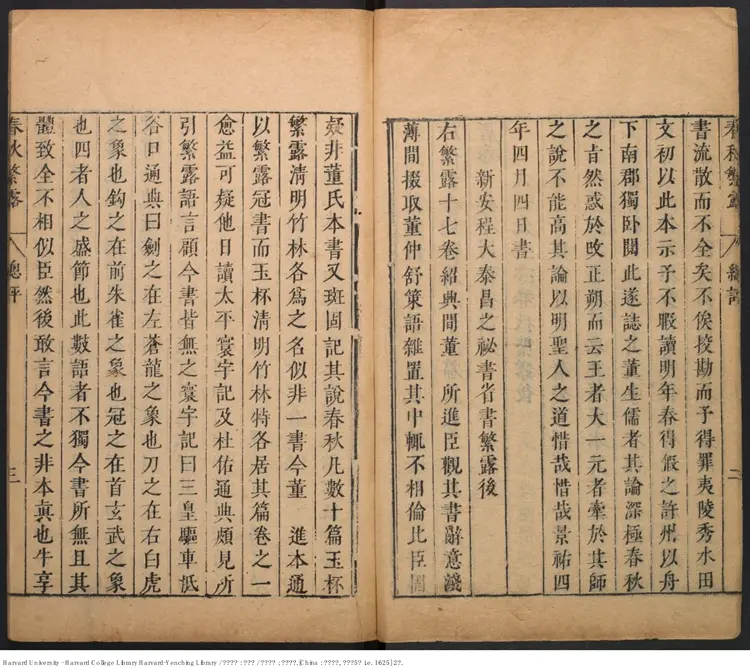 書流散而不全矣不俟挍勘而予得罪夷陵秀水田
文初以此本示予不暇讀明年春得假之許州以舟
下南郡獨卧閱此遂誌之董生儒者其論深極春秋
之旨然惑於攺正朔而云王者大一元者牽於其師
之說不能高其論以明聖人之道惜哉惜哉景祐四
年四月四日書
新安程大泰昌之祕書省書繁露後
右繁露十七卷紹興間董 所進臣觀其書辭意淺
薄間掇取董仲舒策語雜置其中輒不相倫比臣固
疑非董氏本書又班固記其說春秋凡數十篇玉杯
繁露清明竹林各爲之名似非一書今董 進本通
以繁露冠書而玉杯清明竹林特各居其篇卷之一
愈益可疑他日讀太平寰宇記及杜佑通典頗見所
引繁露語言顧今書皆無之寰宇記曰三皇驅車抵
谷口通典曰劍之在左蒼龍之象也刀之在右白虎
之象也鈎之在前朱雀之象也冠之在首玄武之象
也四者人之盛節也此數語者不獨今書所無且其
體致全不相似臣然後敢言今書之非本眞也牛享
春秋繁露 總評 二
春秋繁露 總評 三
Harvard University - Harvard College Library Harvard-Yenching Library / ???? : ??? / ???? ; ????. [China : ????, ???5? i.e. 1625] 2?.